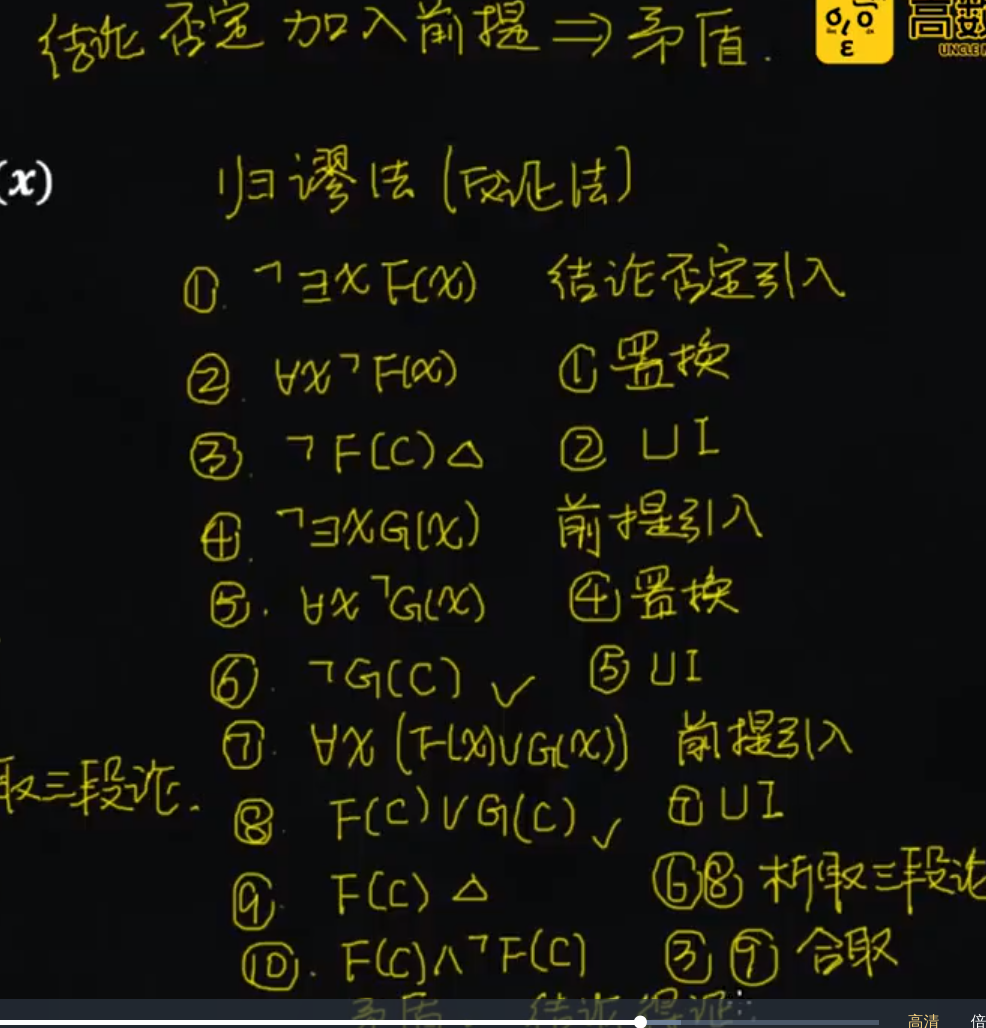 结论否定加入前提⇒矛盾.
高数
UNCLE
(x)
归谬法(反证法)
①. ¬∃xF(x) 结论否定引入
②. ∀x¬F(x) ①置换
③. ¬F(C)△ ② UI
④. ¬∃xG(x) 前提引入
⑤. ∀x¬G(x) ④置换
⑥. ¬G(C) ✓ ⑤ UI
⑦. ∀x(F(x)∨G(x)) 前提引入
取三段论.
⑧. F(C)∨G(C) ✓ ⑦ UI
⑨. F(C) △ ⑥⑧ 析取三段论
⑩. F(C)∧¬F(C) ③⑨ 合取
矛盾. 结论得证
高清 倍